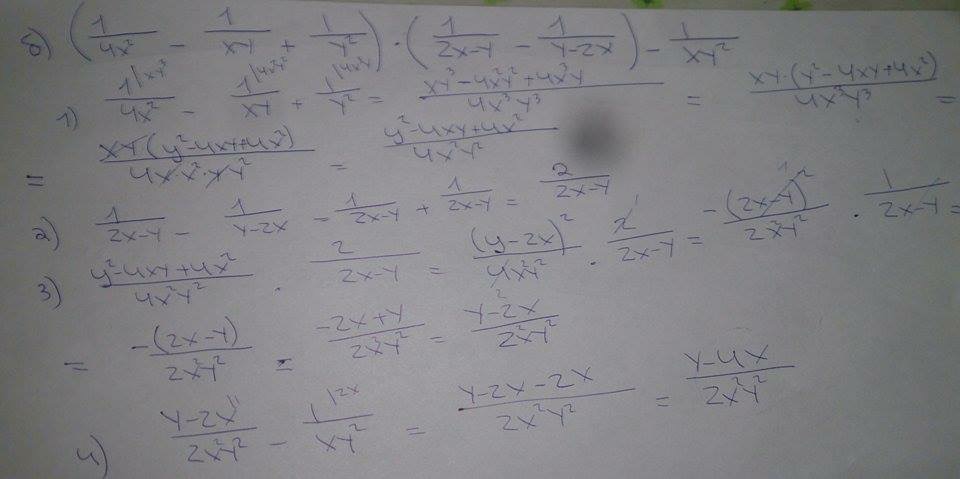 б) (1/4x² - 1/xy + 1/y²) · (1/2x-y - 1/y-2x) - 1/xy²
1) 1|xy³/4x² - 1|4x²y²/xy + 1|4x³y/y² = xy³-4x²y²+4x³y/4x³y³ = xy·(y²-4xy+4x²)/4x³y³ =
= xy(y²-4xy+4x²)/4x·x²·xy² = y²-4xy+4x²/4x²y²
2) 1/2x-y - 1/y-2x = 1/2x-y + 1/2x-y = 2/2x-y
3) y²-4xy+4x²/4x²y² · 2/2x-y = (y-2x)²/4x²y² · 2/2x-y = -(2x-y)²/2x²y² · 1/2x-y =
= -(2x-y)/2x²y² = -2x+y/2x²y² = y-2x/2x²y²
4) y-2x/2x²y² - 1|2x/xy² = y-2x-2x/2x²y² = y-4x/2x²y²